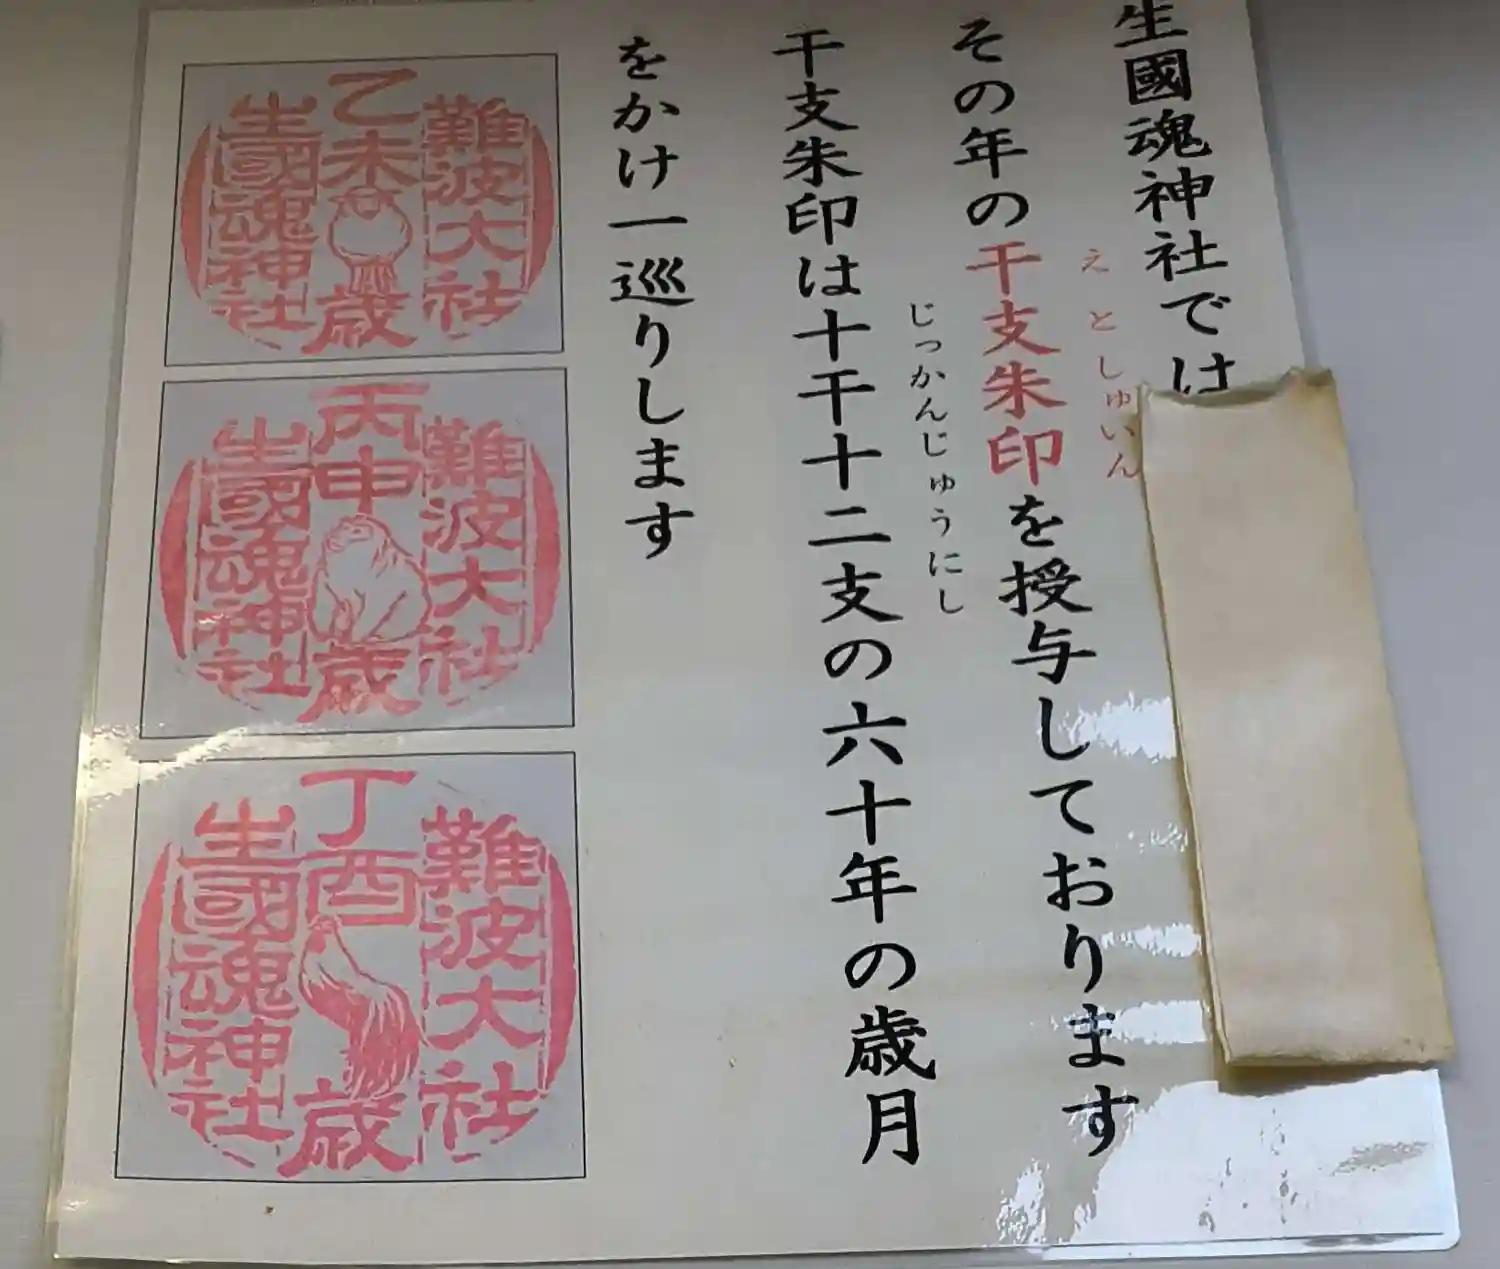 生國魂神社では
その年の干支朱印を授与しております
えとしゅいん
干支朱印は十干十二支の六十年の歳月
じっかんじゅうにし
をかけ一巡りします
難波大社
乙未歳
生國魂神社
難波大社
丙申歳
生國魂神社
難波大社
丁酉歳
生國魂神社